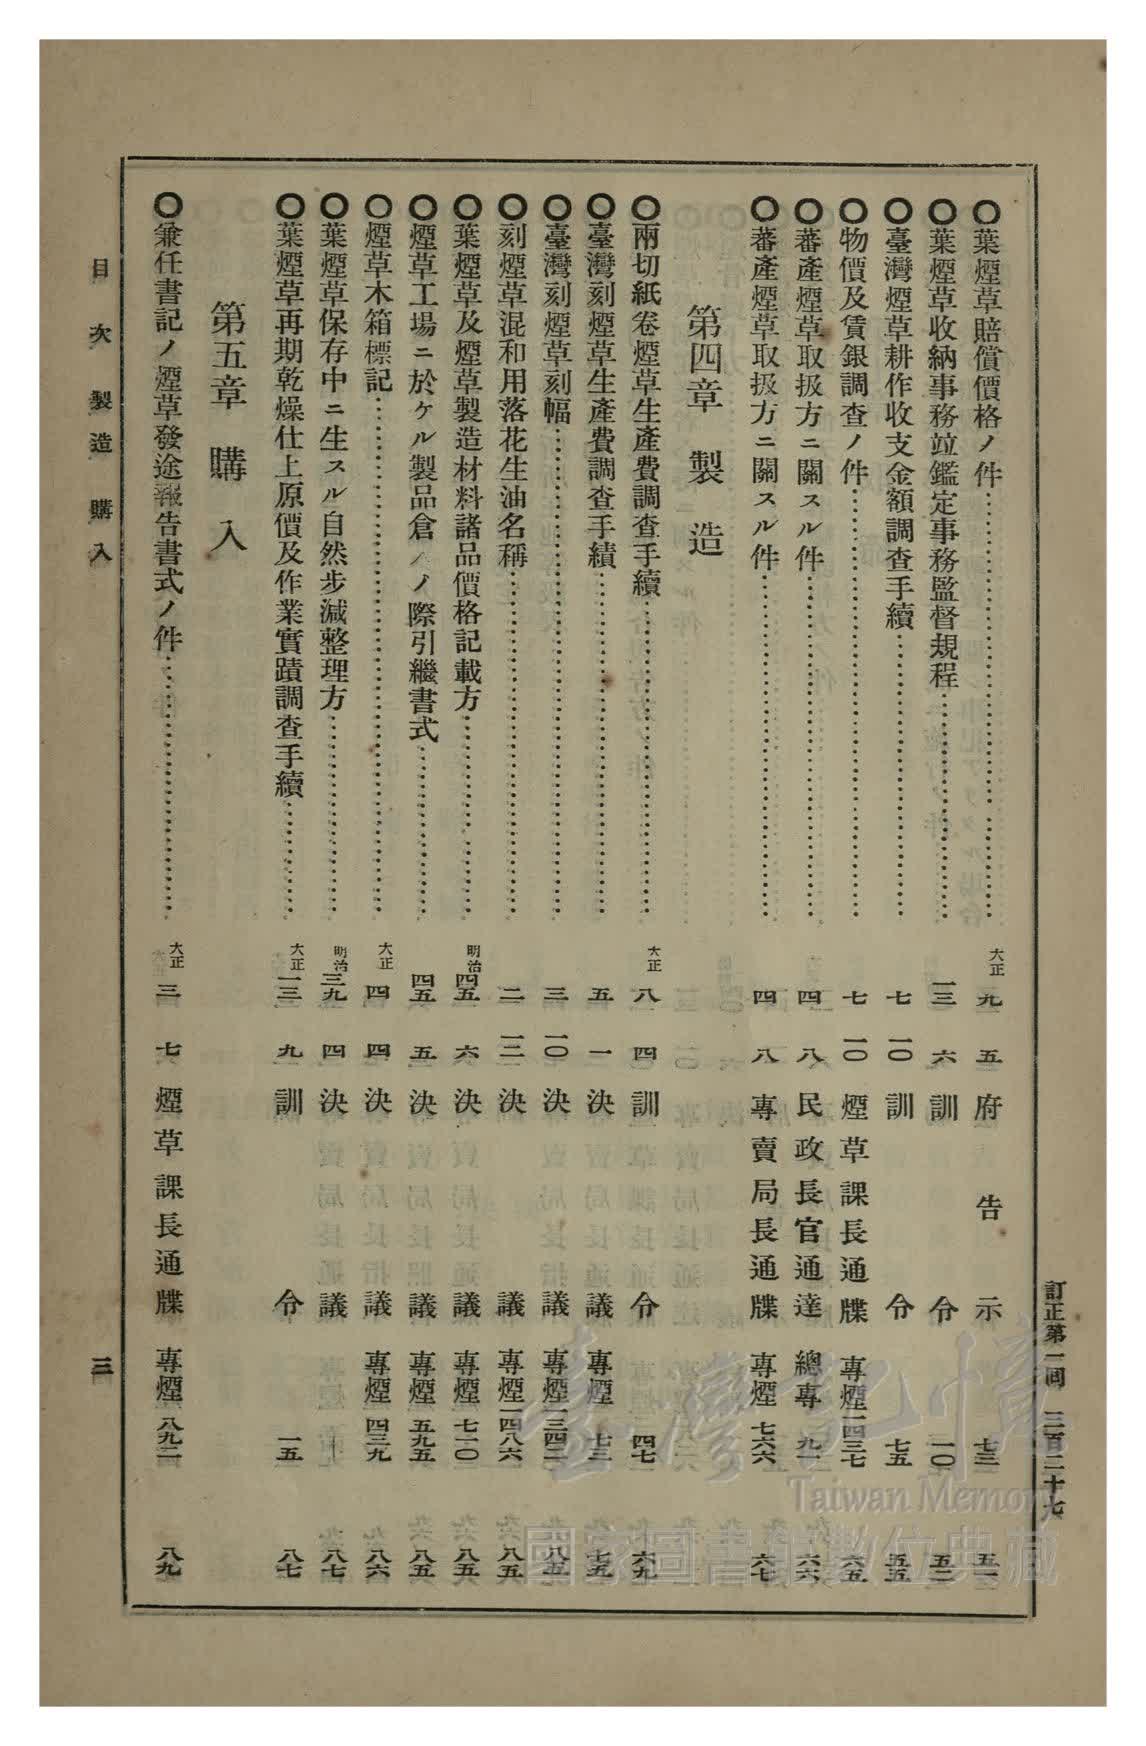 訂正第一回　三百二十七
○葉煙草賠償價格ノ件 大正九 五 府告示 七三 五一
○葉煙草收納事務竝鑑定事務監督規程 一三 六 訓令 一〇 五二
○臺灣煙草耕作收支金額調查手續 七 一〇 訓令 七五 五五
○物價及賃銀調查ノ件 七 一〇 煙草課長通牒 專煙一四三七 六五
○蕃產煙草取扱方ニ關スル件 四 八 民政長官通達 總專 九一 六六
○蕃產煙草取扱方ニ關スル件 四 八 專賣局長通牒 專煙七六六 六七
第四章　製造
○兩切紙卷煙草生產費調查手續 大正八 四 訓令 四七 六九
○臺灣刻煙草生產費調查手續 五 一 決議 專煙 七三 七五
○臺灣刻煙草刻幅 三 一〇 決議 專煙一三四二 八五
○刻煙草混和用落花生油名稱 二 一二 決議 專煙一四八六 八五
○葉煙草及煙草製造材料諸品價格記載方 明治四五 六 決議 專煙七一〇 八五
○煙草工場ニ於ケル製品倉入ノ際引繼書式 四五 五 決議 專煙五九五 八五
○煙草木箱標記 大正四 四 決議 專煙四三九 八六
○葉煙草保存中ニ生スル自然步減整理方 明治三九 四 決議 八七
○葉煙草再期乾燥仕上原價及作業實蹟調查手續 大正一三 九 訓令 一五 八七
第五章　購入
○兼任書記ノ煙草發途報告書式ノ件 大正三 七 煙草課長通牒 專煙八九二 八九
目次　製造　購入　三
臺灣記憶
Taiwan Memory
國家圖書館數位典藏